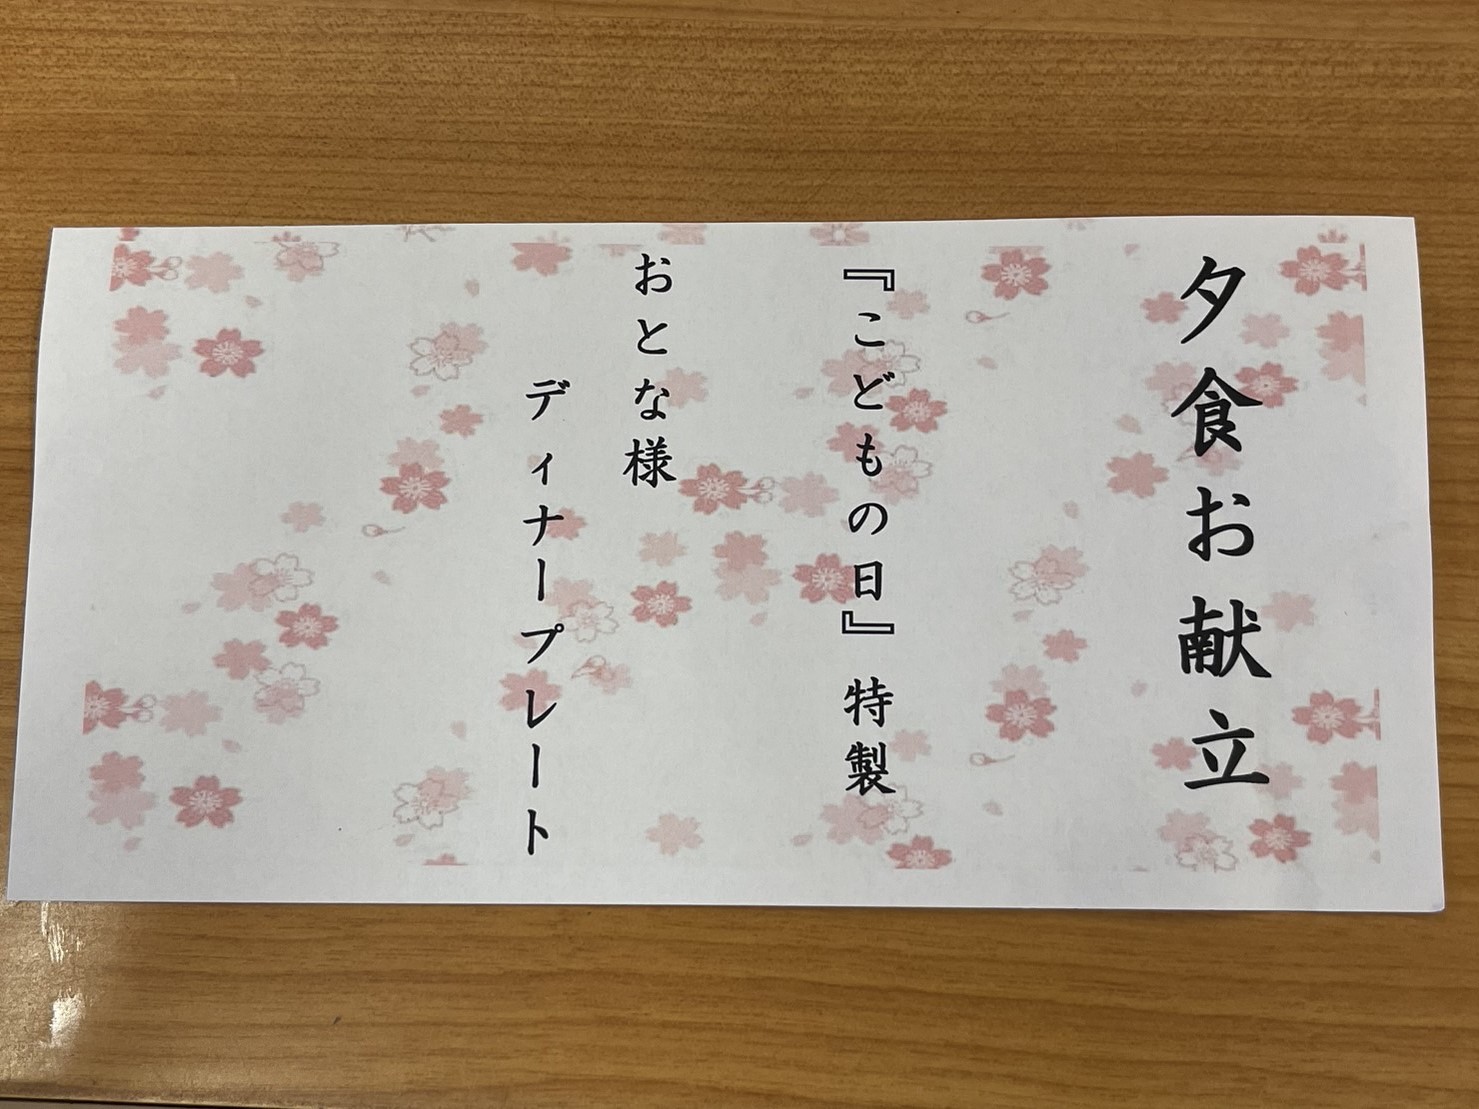 夕食お献立
『こどもの日』特製
おとな様
ディナープレート